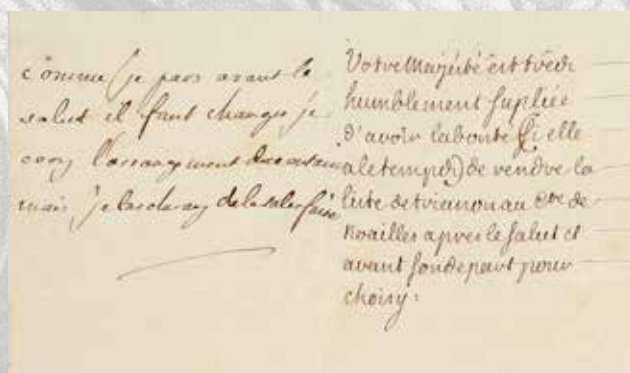 comme je pars avant le
salut il faut changer je
l'arrangement
mais je
Votre Majesté est très
humblement supliée
d'avoir la bonté (si elle
a le temps) de rendre la
liste de trianon au Cte de
Noailles apres le salut et
avant son depart pour
choisy.